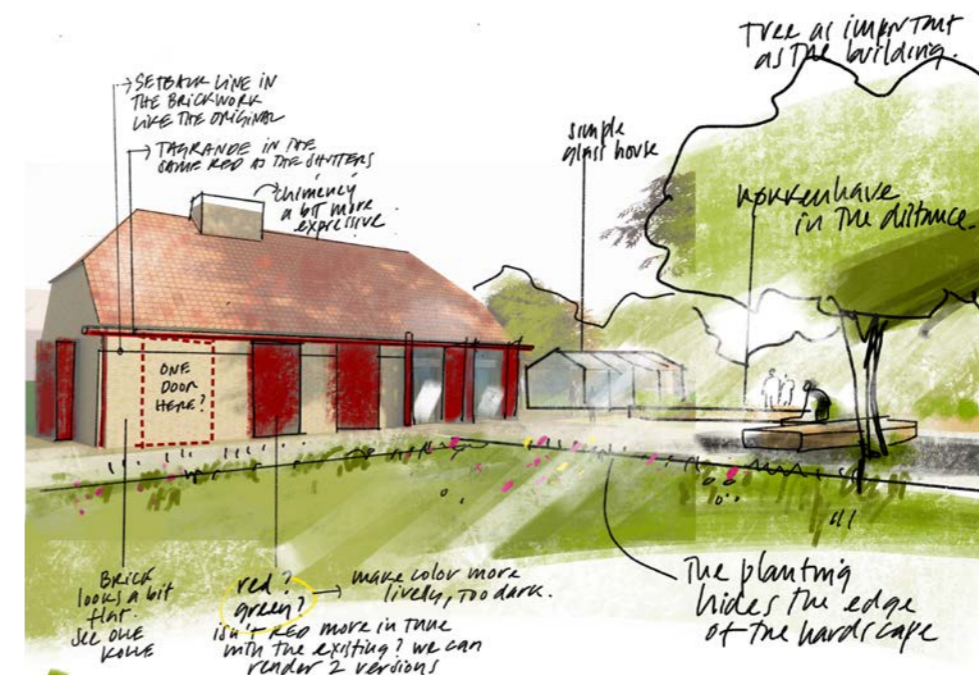 SETBACK LINE IN
THE BRICKWORK
LIKE THE ORIGINAL
TAGRANDE IN THE
SAME RED AS THE SHUTTERS
chimeney
a bit more
expressive
simple
glass house
Tree as important
as the building.
in the distance.
ONE
DOOR
HERE?
BRICK
looks a bit
flat.
see
red?
green?
make color more
lively, too dark.
isn't RED more in tune
with the existing? we can
render 2 versions
The planting
hides the edge
of the hardscape